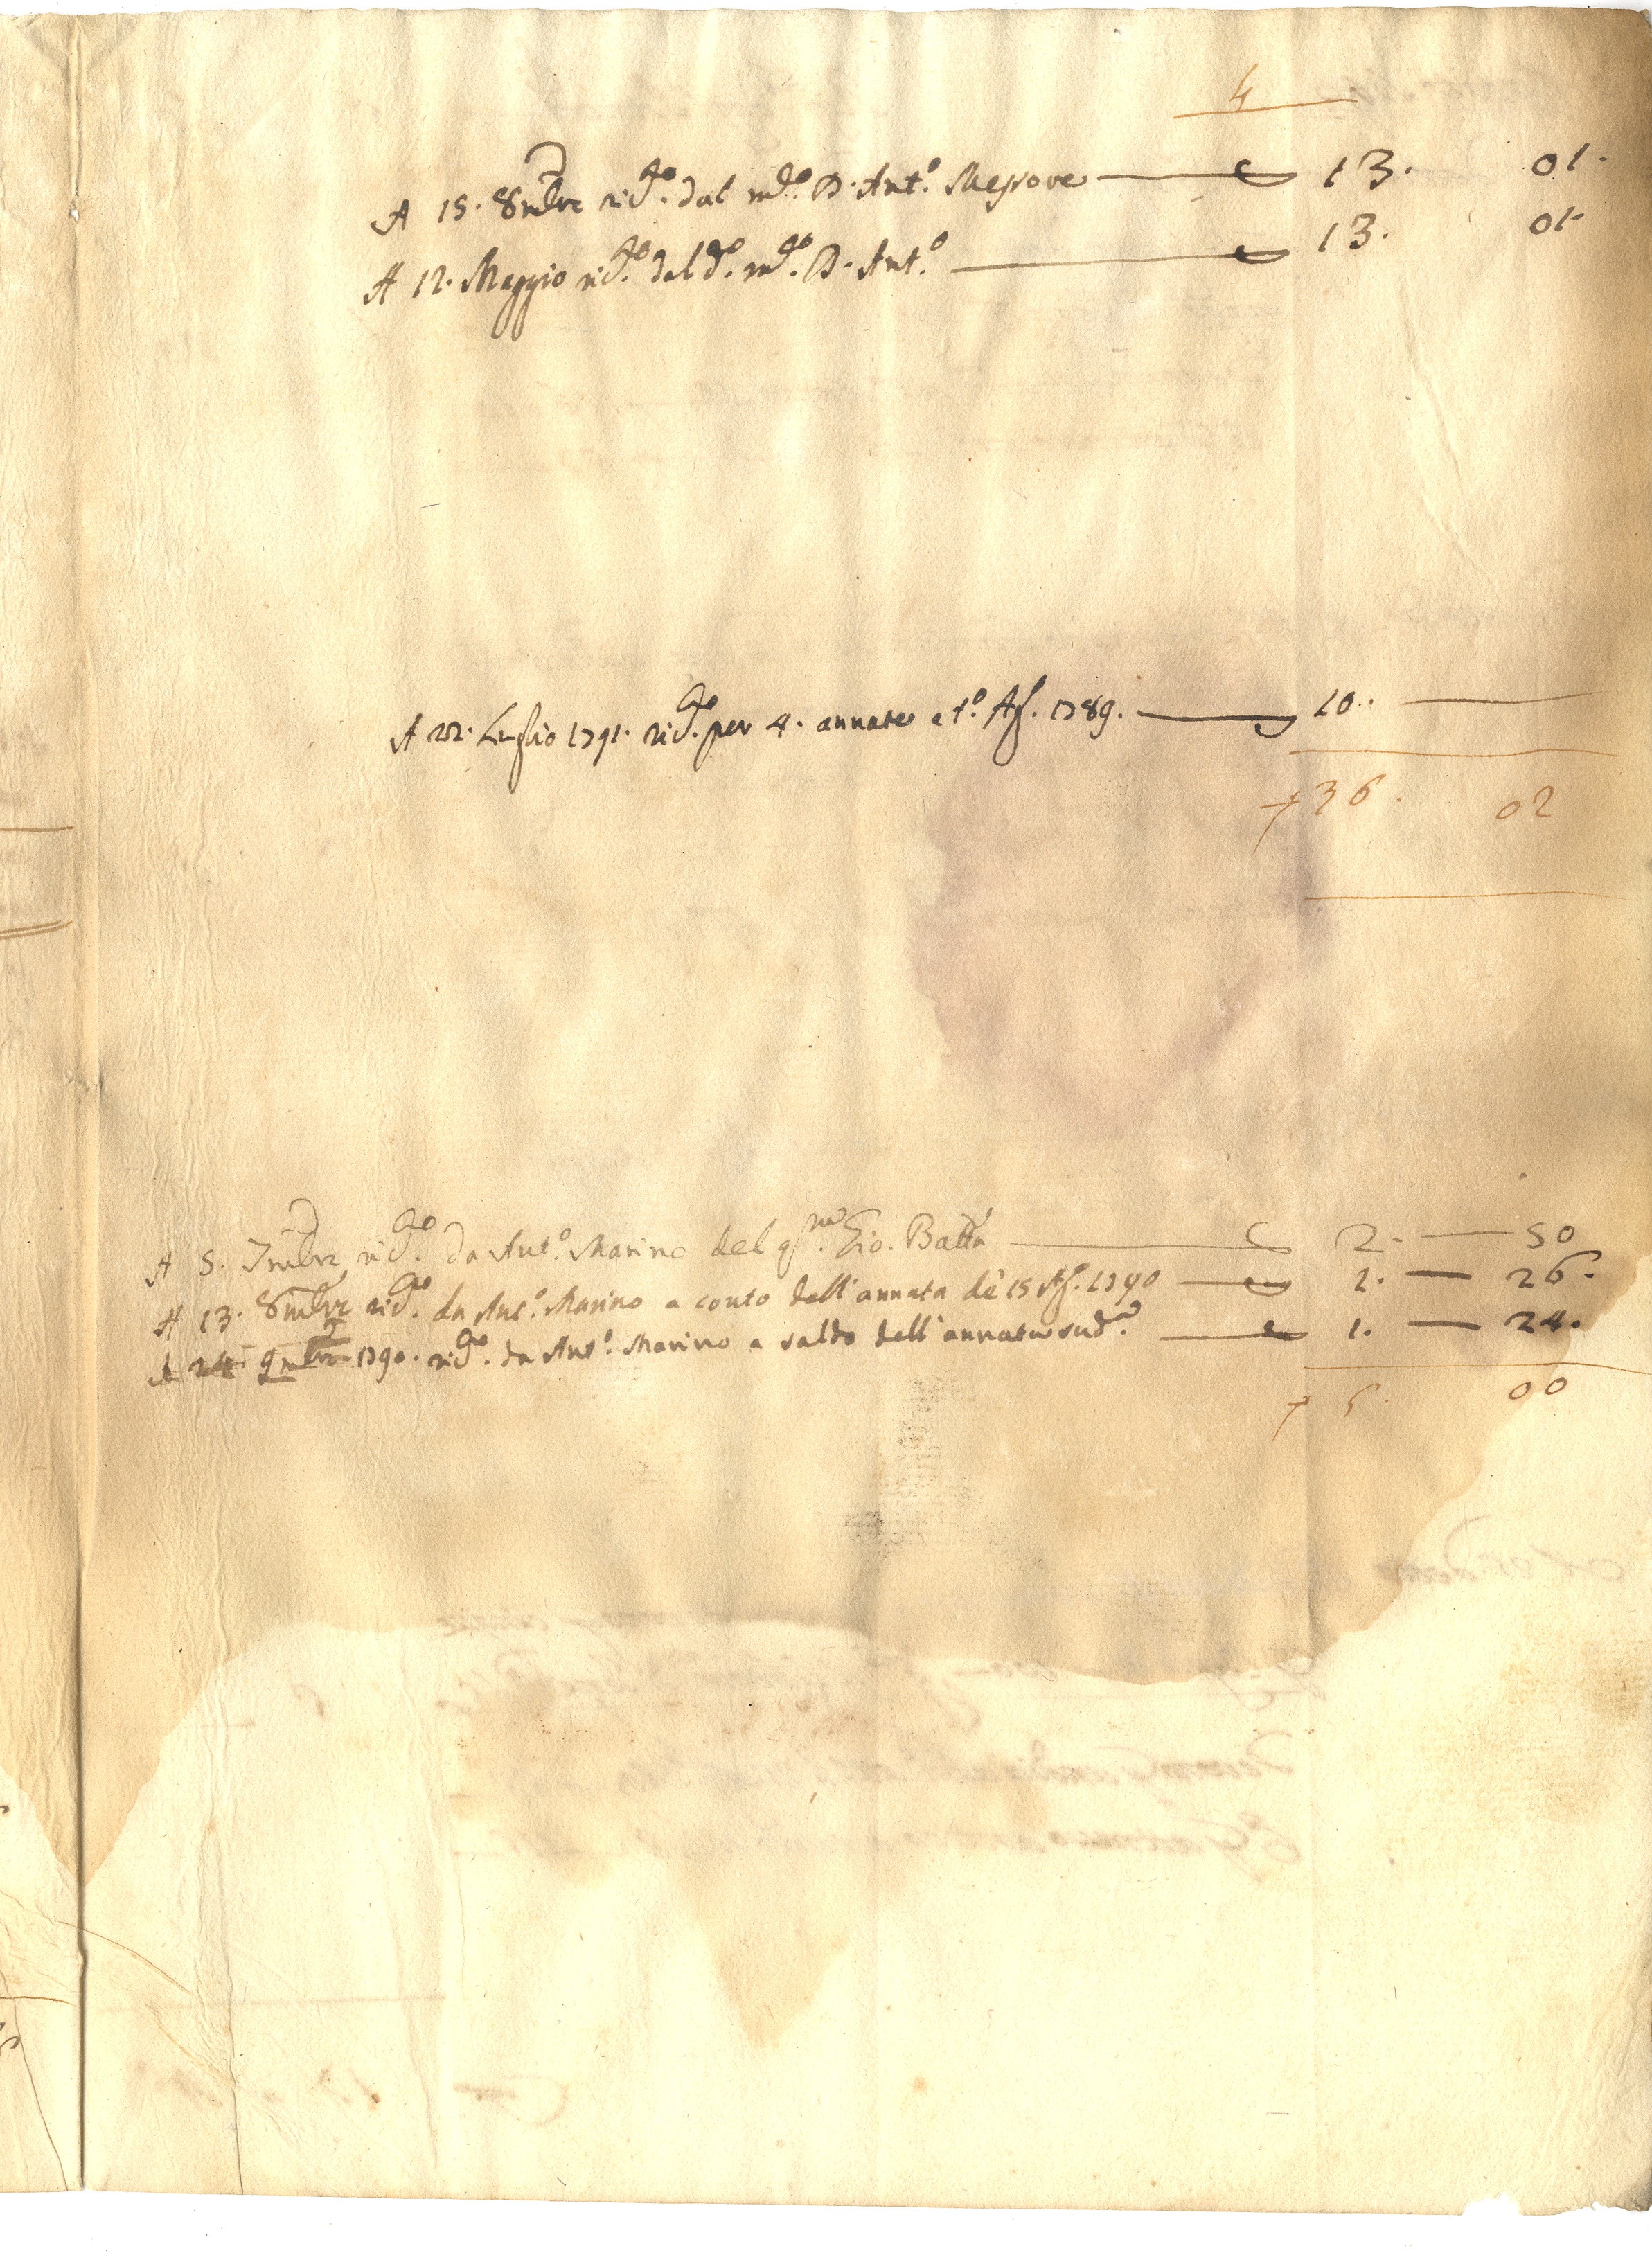 4
A 15. 8mbre ric.to dal md.o D. Ant.o Messove 13. 01.
A 12. Maggio ric.to dal d.o md.o D. Ant.o 13. 01.
A 22. Luglio 1791. ric.to per 4. annate a t.o Ag. 1789. 10..
36. 02
A 5. 7mbre ric.to da Ant.o Marino del q.m Gio. Batta 2. 50
A 13. 8mbre ric.to da Ant.o Marino a conto dell'annata de 15 Ag. 1790 1. 26.
A 24 9mbre 1790. ric.to da Ant.o Marino a saldo dell'annata sud.a 1. 24.
5. 00